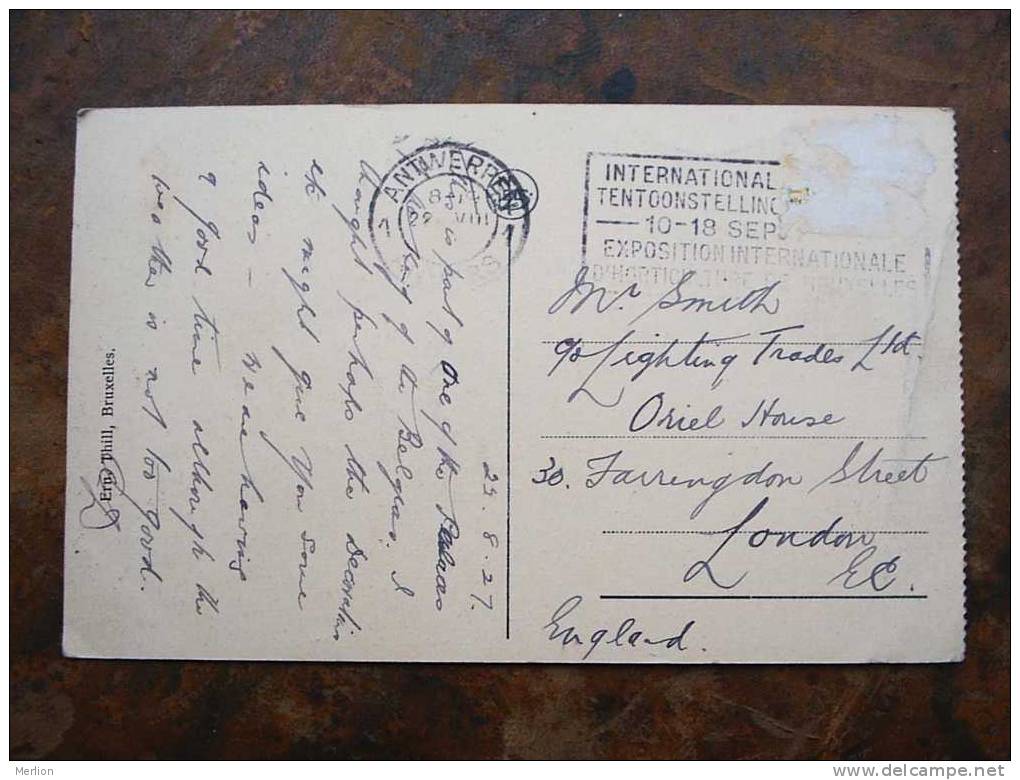 29.8.27.
This is part of One of the Palaces
of the King of the Belgians. I
thought perhaps the Decorations
etc might give you some
ideas — We are having
a good time although the
weather is not too good.
Ern. Thill, Bruxelles.
ANTWERPEN
1 1
VIII
INTERNATIONAL
TENTOONSTELLING
10-18 SEP
EXPOSITION INTERNATIONALE
D'HORTICULTURE DE BRUXELLES
Mr Smith
c/o Lighting Trades Ltd.
Oriel House
30. Farringdon Street
London
E.C.
England.
Merlion
www.delcampe.net